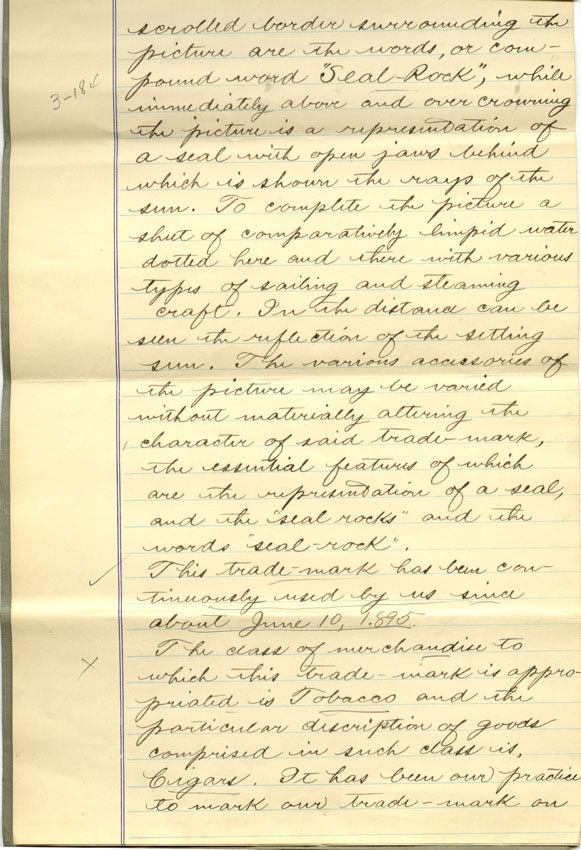 scrolled border surrounding the
picture are the words, or com-
pound word "Seal-Rock", while
3-18
immediately above and over crowning
the picture is a representation of
a seal with open jaws behind
which is shown the rays of the
sun. To complete the picture a
shut of comparatively limpid water
dotted here and there with various
types of sailing and steaming
craft. In the distance can be
seen the reflection of the setting
sun. The various accessories of
the picture may be varied
without materially altering the
character of said trade-mark,
the essential features of which
are the representation of a seal,
and the "seal rocks" and the
words "seal-rock".
This trade-mark has been con-
tinuously used by us since
about June 10, 1895.
The class of merchandise to
which this trade-mark is appro-
priated is Tobacco and the
particular discription of goods
comprised in such class is,
Cigars. It has been our practice
to mark our trade-mark on